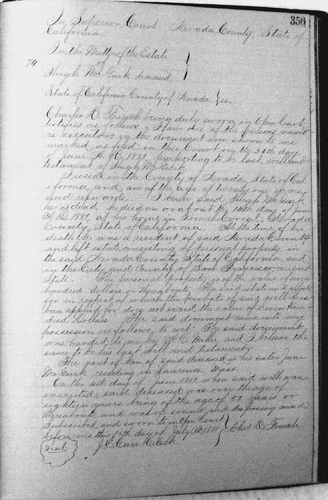 350
In Superior Court. Nevada County, State of
California.
In the Matter of the Estate
of
Hugh McGurk deceased.
State of California County of Nevada } ss.
Charles D. being duly sworn in Open Court,
testifies as follows. I am one of the persons named
as executors in the document now shown to me
marked, as filed on this Court on the day
of June A.D. 1881, purporting to be last will and
testament of Hugh McGurk.
I reside in the County of Nevada State of Cal-
ifornia, and am of the age of twenty one years
and upwards. I knew said Hugh McGurk
he is dead, he died on or about the day of
A.D. 1881, at his home in French Corral, Nevada
County, State of California. At the time of his
death he was a resident of said Nevada County
and left estate consisting of personal property in
the said Nevada County State of California, and
in the City and County of San Francisco in said
State. The personal property is of the value of
hundred dollars or thereabouts. The said estate & effects
for in respect of which the probate of said will has
been applied for do not exceed the value of
dred dollars. The said document came into my
possession as follows, to wit: The said document
was handed to me by and I believe the
same to be his last will and testament.
The next of kin of said deceased is his sister Jane
McGurk residing in Lawrence, Mass.
On the 4th day of June 1881 when said will was
executed said deceased was over the age of
eighteen years being of the age of years or
thereabouts and was of sound and disposing mind.
Subscribed and sworn to in Open Court
before me this day of July A.D. 1881
J. E. Carr Clerk
Chas D.
Seal